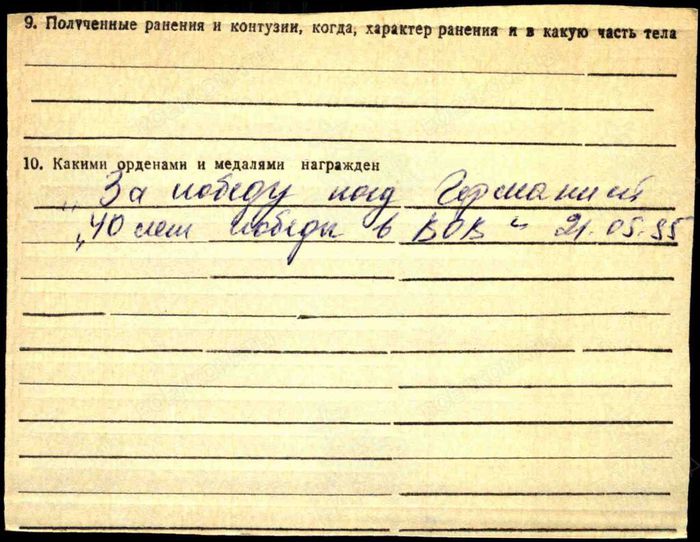 9. Полученные ранения и контузии, когда, характер ранения и в какую часть тела
10. Какими орденами и медалями награжден
„ За победу над Германией
„40 лет победы в ВОВ" 21.05.95